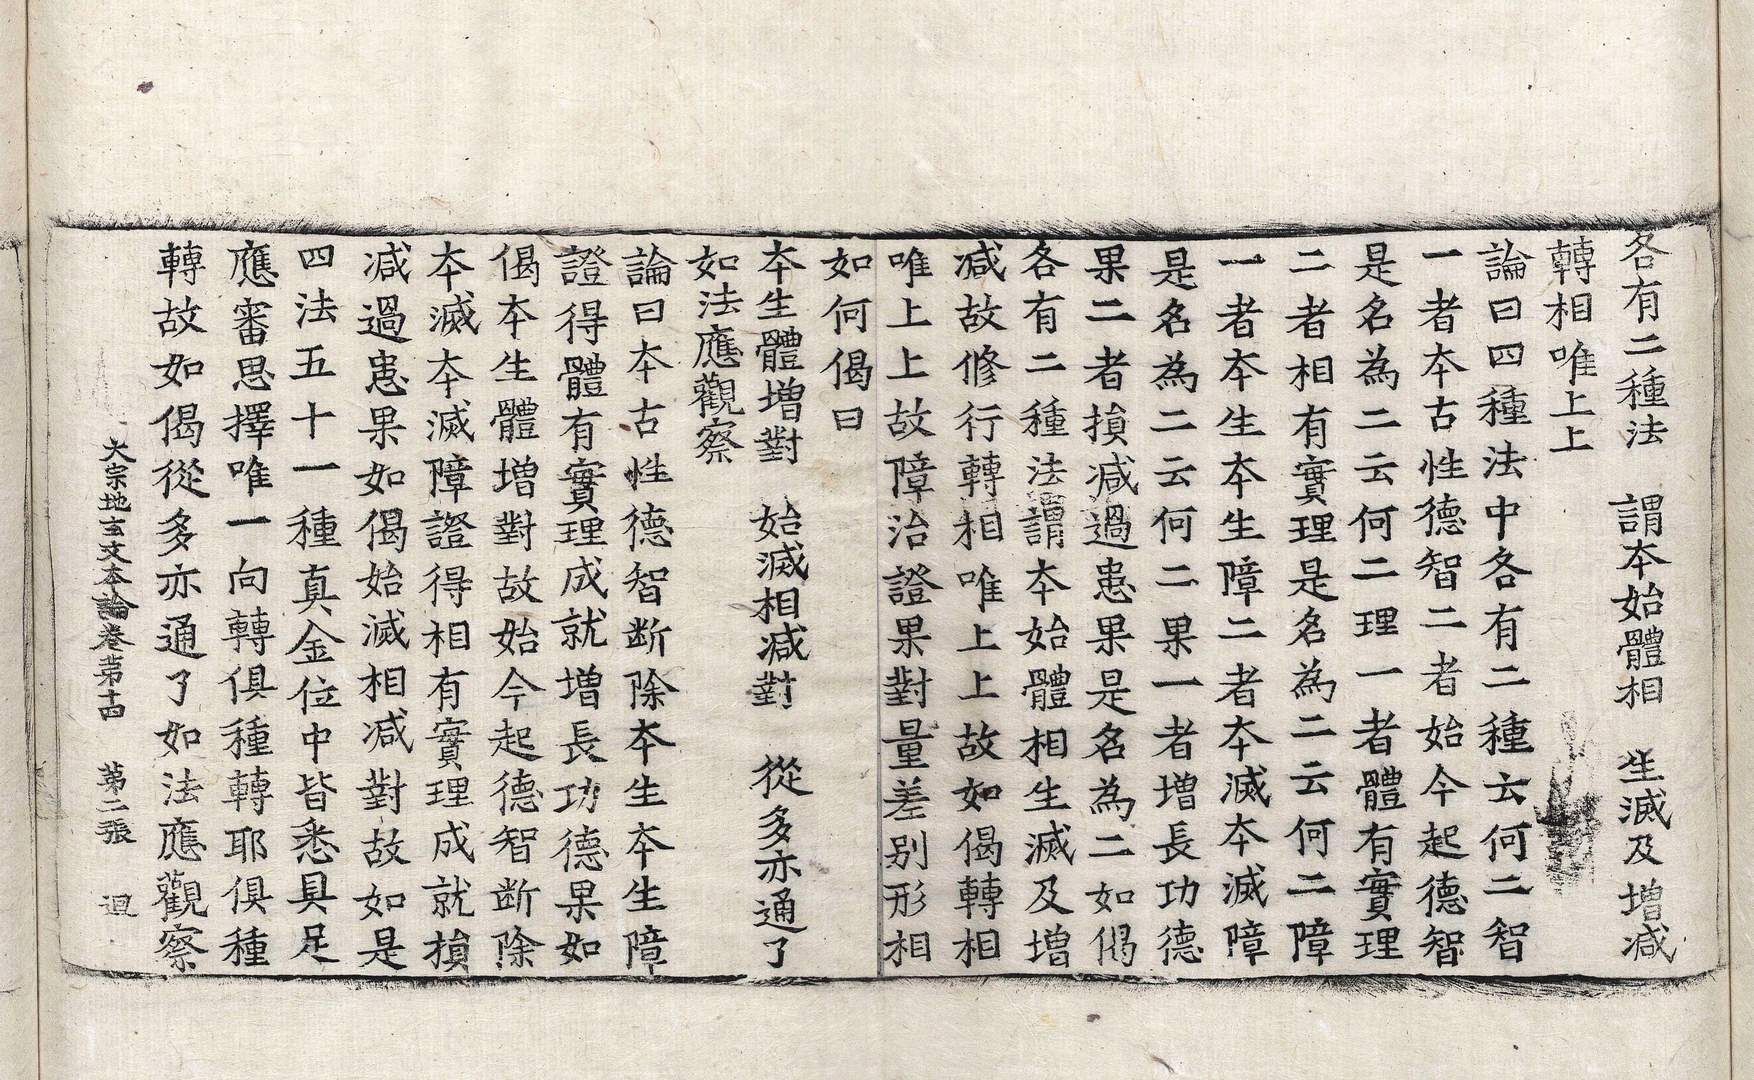 各有二種法　謂本始體相　生滅及增減
轉相唯上上
論曰四種法中各有二種云何二智
一者本古性德智二者始今起德智
是名為二云何二理一者體有實理
二者相有實理是名為二云何二障
一者本生本生障二者本滅本滅障
是名為二云何二果一者增長功德
果二者損減過患果是名為二如偈
各有二種法謂本始體相生滅及增
減故修行轉相唯上上故如偈轉相
唯上上故障治證果對量差別形相
如何偈曰
本生體增對　始滅相減對　從多亦通了
如法應觀察
論曰本古性德智斷除本生本生障
證得體有實理成就增長功德果如
偈本生體增對故始今起德智斷除
本滅本滅障證得相有實理成就損
減過患果如偈始滅相減對故如是
四法五十一種真金位中皆悉具足
應審思擇唯一向轉俱種轉耶俱種
轉故如偈從多亦通了如法應觀察
大宗地玄文本論卷第十四　第二張　迴